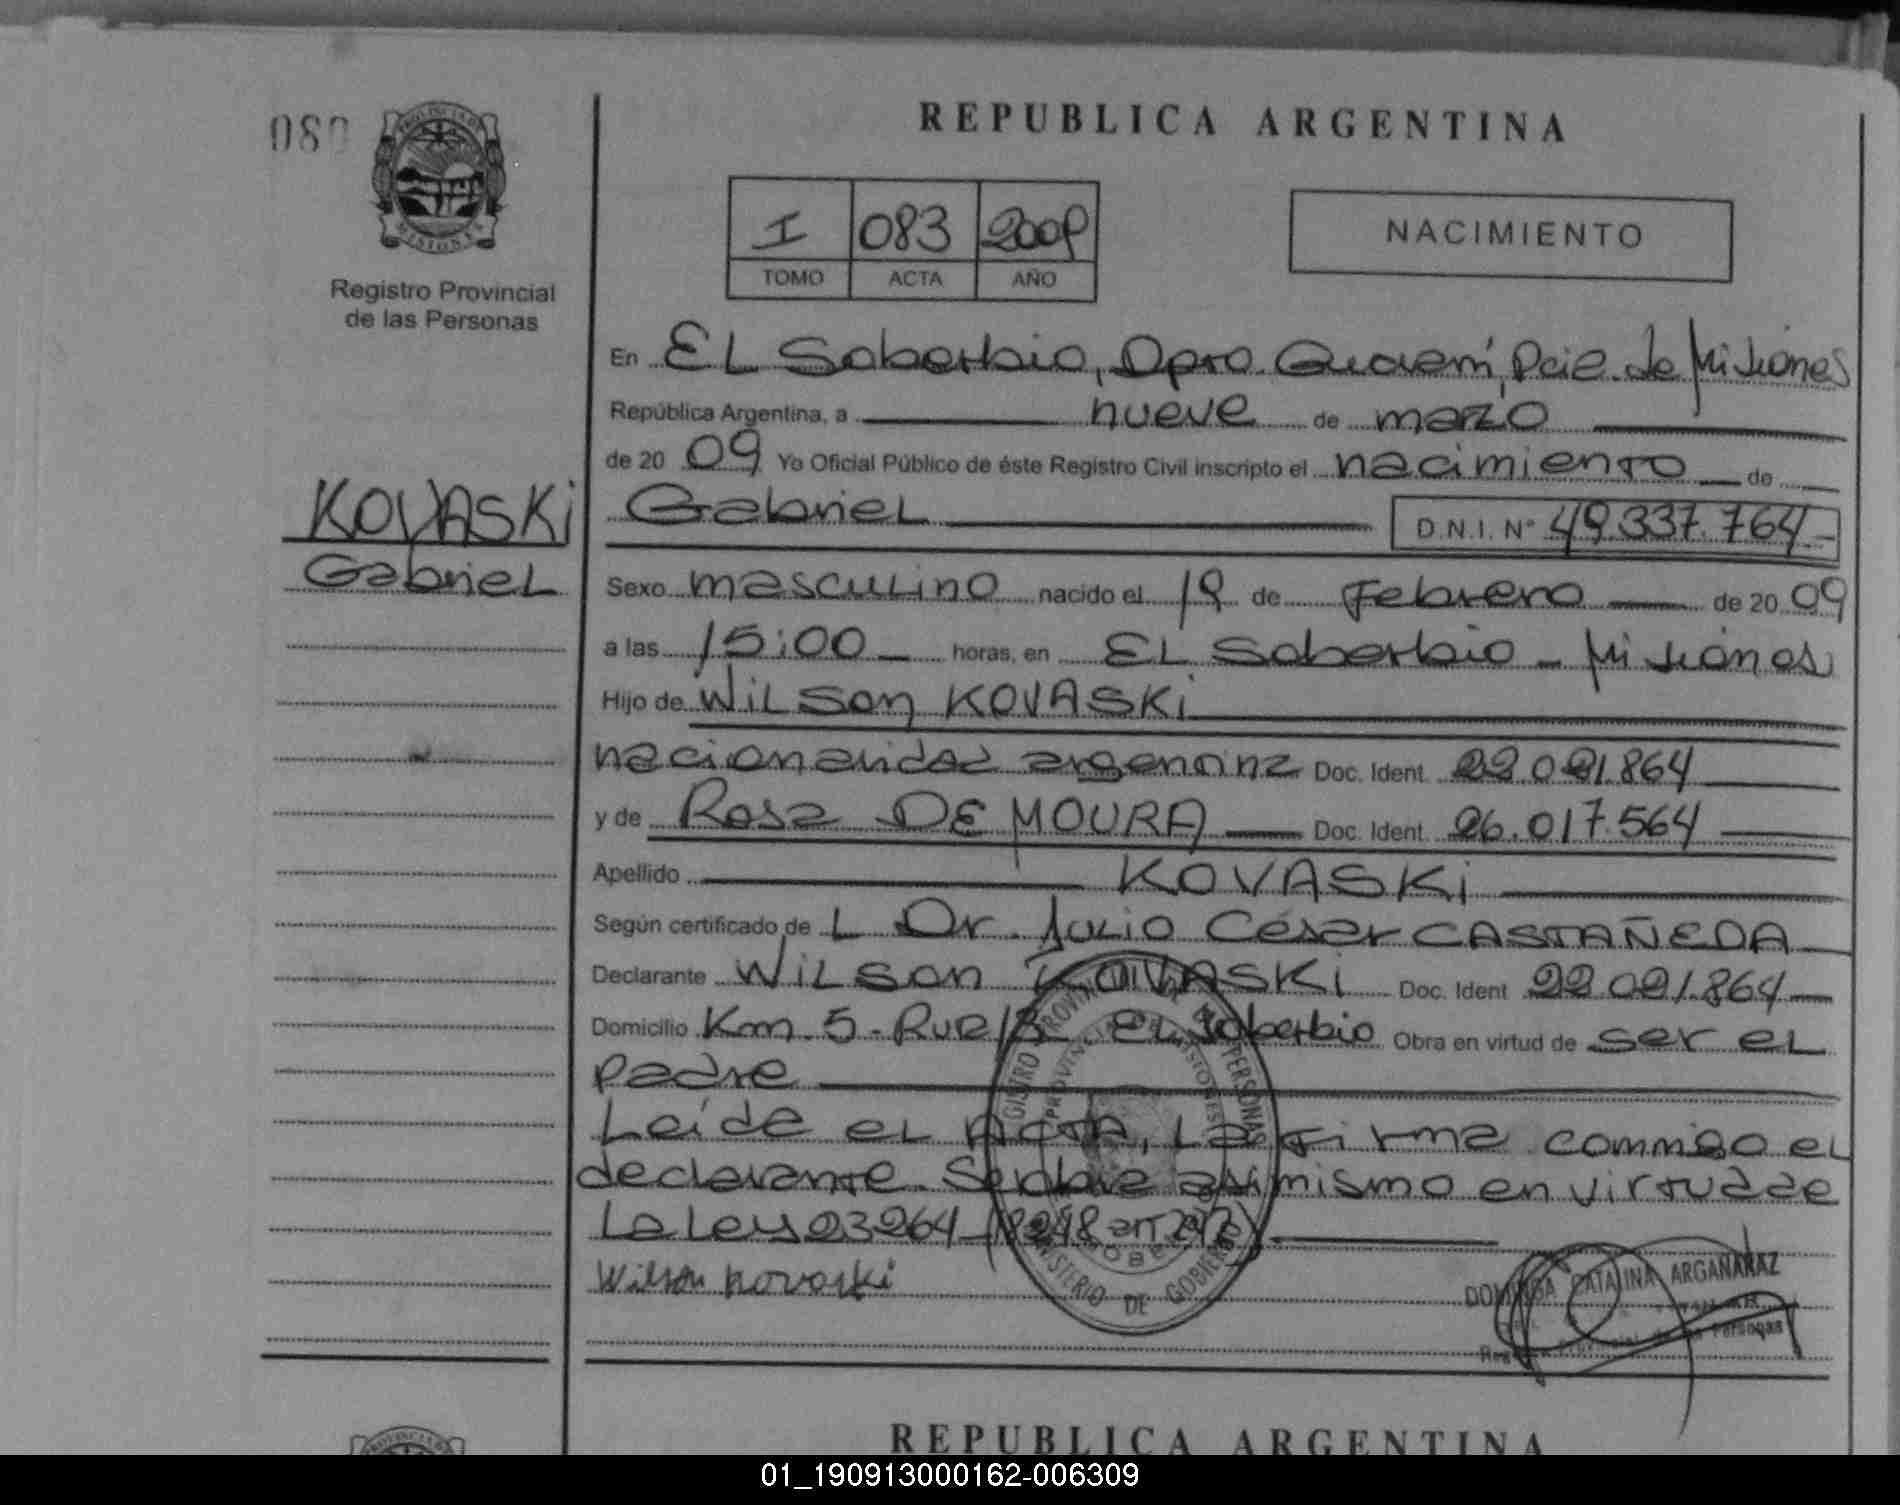 080
PROVINCIA DE
MISIONES
Registro Provincial
de las Personas
KOVASKi
Gabriel
REPUBLICA ARGENTINA
I 083 2009
TOMO ACTA AÑO
NACIMIENTO
En EL Soberbio, Dpto. Guaraní, Pcia. de Misiones
República Argentina, a nueve de marzo
de 20 09 Yo Oficial Público de éste Registro Civil inscripto el nacimiento de
Gabriel D.N.I. Nº 49.337.764-
Sexo masculino nacido el 19 de Febrero de 20 09
a las 15:00 horas, en EL Soberbio - Misiones
Hijo de WiLson KOVASKi
nacionalidad argentina Doc. Ident. 22.021.864
y de Rosa DE MOURA Doc. Ident. 26.017.564
Apellido KOVASKi
Según certificado de L Dr. Julio César CASTAÑEDA
Declarante WiLson KOVASKi Doc. Ident. 22.021.864
Domicilio Km. 5 - Ruta 13 EL Soberbio Obra en virtud de ser el
padre
Leída el ACTA, la firma conmigo el
declarante. Se labra asimismo en virtud de
La Ley 23264 (18248 art 242)
Wilson Kovaski
REGISTRO PROVINCIAL DE LAS PERSONAS
PROVINCIA DE MISIONES
MINISTERIO DE GOBIERNO
DOMINGA CATALINA ARGAÑARAZ
Registro Provincial de las Personas
REPUBLICA ARGENTINA
01_190913000162-006309